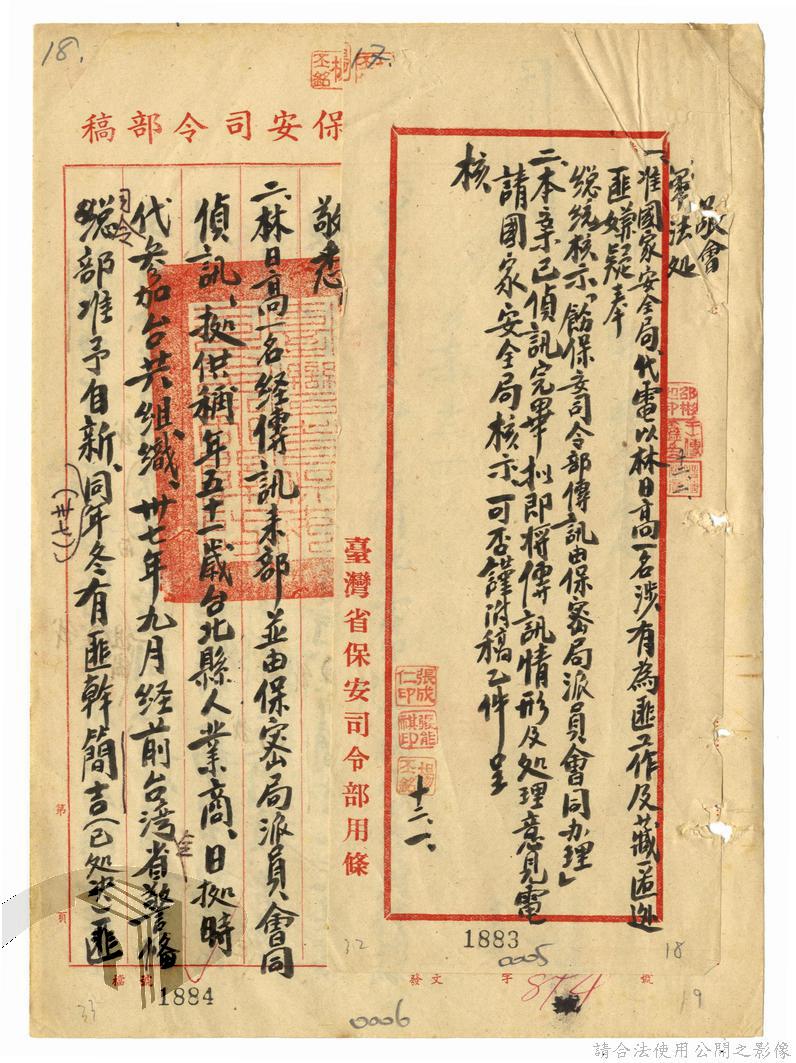 敬會
軍法処
一、准國家安全局代電以林日高一名涉有為匪工作及藏匿逃
匪嫌疑奉
總統核示「飭保安司令部傳訊由保密局派員會同办理」
二、本案已偵訊完畢拟即將傳訊情形及処理意見電
請國家安全局核示可否謹附稿乙件呈
核
張成仁印
張能祺印
楊丕銘
十二、一、
十二、二、
臺灣省保安司令部用條
18.
17.
楊丕銘
保安司令部稿
敬悉
二、林日高一名經傳訊來部並由保密局派員會同
偵訊、據供稱年五十一歲台北縣人業商、日據時
代參加台共組織、卅七年九月經前台湾省警備
總司令部准予自新、同年冬有匪幹簡吉(已処決)匪
(卅七)
全
第
頁
檔號
發文
字
874
號
1883
0005
32
18
1884
0006
33
19
請合法使用公開之影像